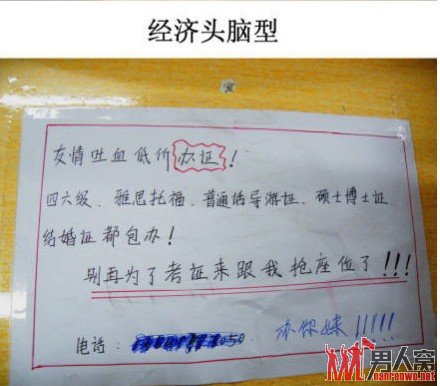 经济头脑型
友情吐血低价办证!
四六级、雅思托福、普通话导游证、硕士博士证、
结婚证都包办!
别再为了考证来跟我抢座位了!!!
电话:
办你妹!!!!!
男人窝
nanrenwo.net